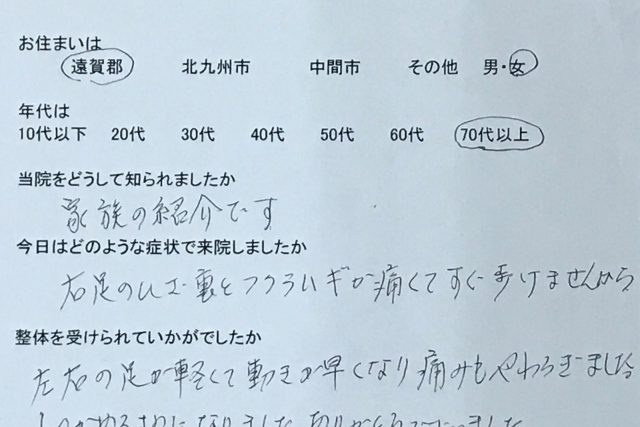 お住まいは
遠賀郡 北九州市 中間市 その他 男・女
年代は
10代以下 20代 30代 40代 50代 60代 70代以上
当院をどうして知られましたか
家族の紹介です
今日はどのような症状で来院しましたか
右足のひざ裏とフクラハギが痛くてすぐ歩けませんから
整体を受けられていかがでしたか
左右の足が軽くて動きが早くなり痛みもやわらぎました
になりました ありがとうございました